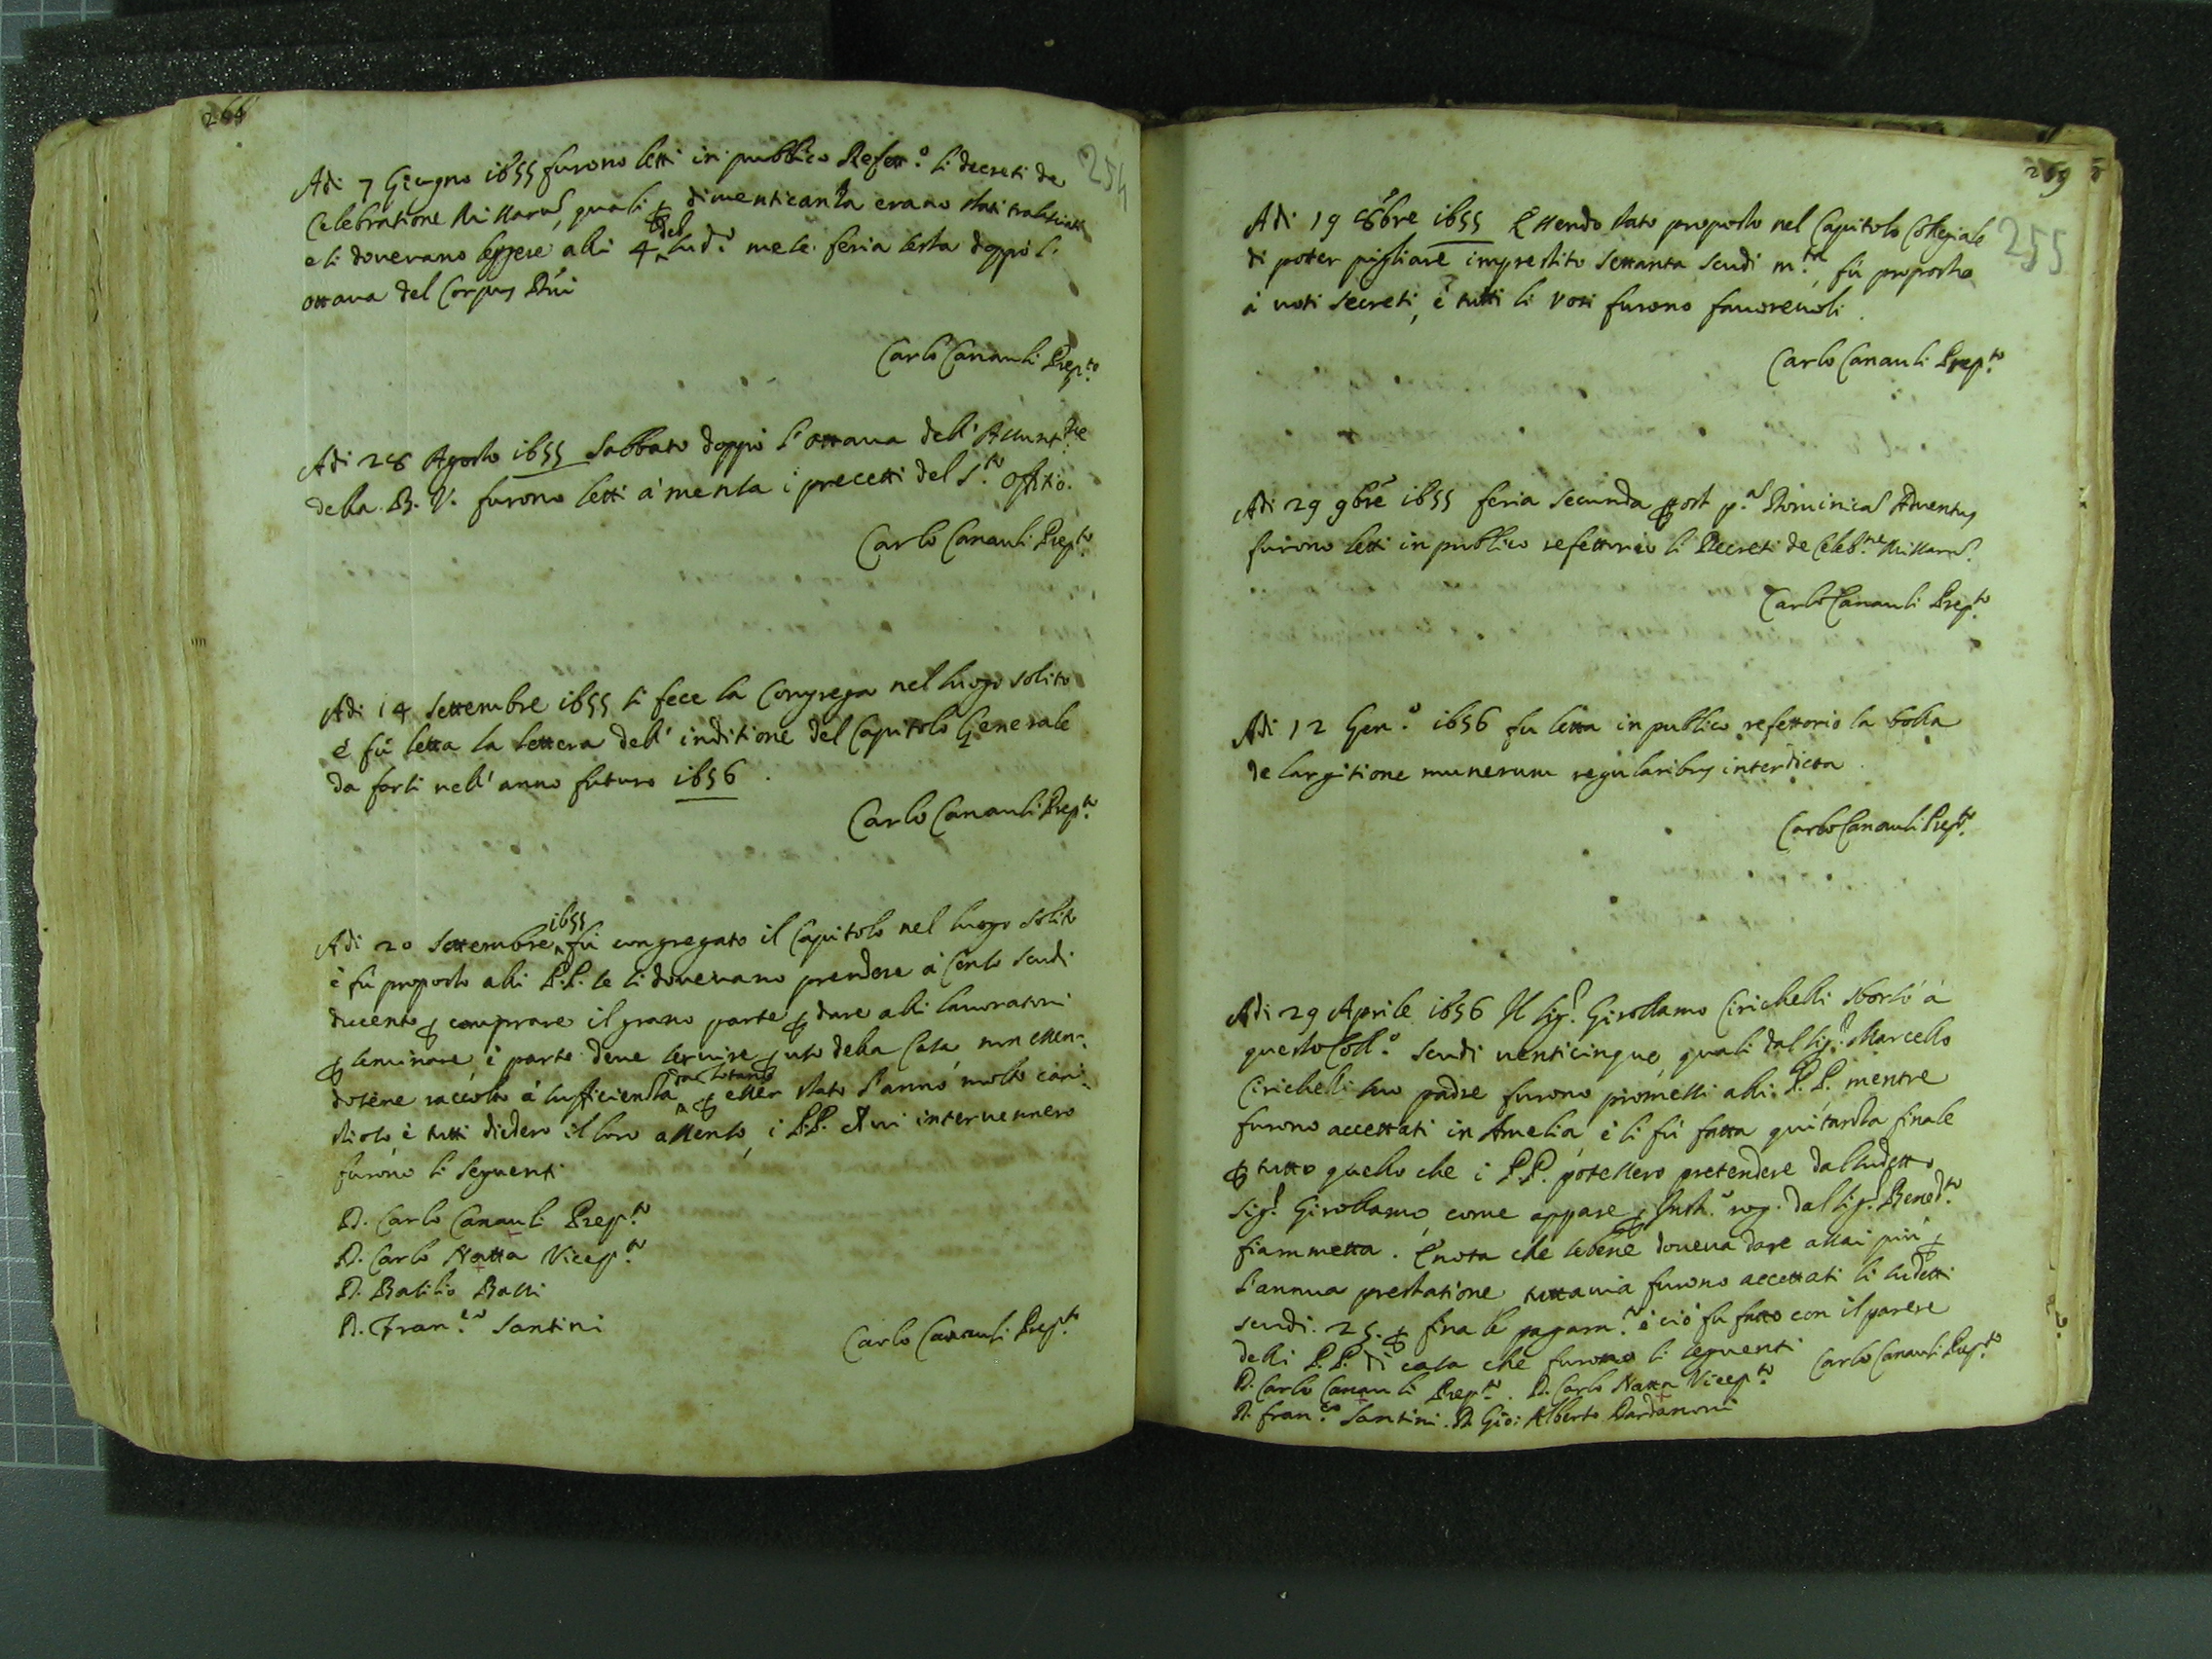 264
254
Adi 7 Giugno 1655 furono letti in publico Refett.º li decreti de
Celebratione Missarū, quali ꝑ dimenticanza erano stati tralasciati
e si doveuano leggere alli 4 del sud.º mese feria sesta doppò l'
ottaua del Corpus Dñi
Carlo Canauli Prep.to
Adi 28 Agosto 1655 Sabbato doppò l'ottaua dell'Assunt.ne
della B. V. furono letti à mensa i precetti del S.to Offitio.
Carlo Canauli Prep.to
Adi 14 Settembre 1655 si fece la Congrega nel luogo solito
è fù letta la lettera dell'inditione del Capitolo Generale
da farsi nell'anno futuro 1656.
Carlo Canauli Prep.to
Adi 20 Settembre 1655 fù congregato il Capitolo nel luogo solito
è fù proposto alli P.P. se si doueuano prendere à Censo scudi
ducento ꝑ comprare il grano parte ꝑ dare alli lauoratori
ꝑ seminare, è parte deue seruire ꝑ uso della Casa non essen-
dosene raccolto à sufficienza ꝑ esser stato l'anno molto cari-
stioso è tutti diedero il loro assenso, i P.P. ch'ui interuennero
furono li seguenti
D. Carlo Canauli Prep.to
D. Carlo Natta Vicep.to
D. Basilio Balli
D. Fran.co Santini
Carlo Canauli Prep.to
255
Adi 19 8bre 1655 Essendo stato proposto nel Capitolo Collegiale
di poter pigliare imprestito settanta scudi m.ta fù proposto
à uoti secreti, è tutti li voti furono fauoreuoli.
Carlo Canauli Prep.to
Adi 29 9bre 1655 feria secunda post p.ā Dominicā Aduentus
furono letti in publico refettorio li Decreti de Celeb.ne Missarū.
Carlo Canauli Prep.to
Adi 12 Gen.º 1656 fu letta in publico refettorio la bolla
de largitione munerum regularibus interdicta.
Carlo Canauli Prep.to
Adi 29 Aprile 1656 Il Sig.r Girollamo Cirichelli sborsò à
questo Coll.º scudi uenticinque, quali dal Sig.r Marcello
Cirichelli suo padre furono promessi alli P.P. mentre
furono accettati in Amelia, è li fù fatta quitanza finale
ꝑ tutto quello che i P.P. potessero pretendere dal sudetto
Sig.r Girollamo, come appare ꝑ Inst.º rog. dal Sig.r Bened.to
fiammetta. E nota che sebene doueua dare assai più ꝑ
l'annua prestatione tuttauia furono accettati li sudetti
scudi. 25. ꝑ final pagam.to è ciò fu fatto con il parere
delli P.P. di casa che furono li seguenti
Carlo Canauli Prep.to
D. Carlo Canauli Prep.to. D. Carlo Natta Vicep.to
D. Fran.co Santini. D. Gio: Alberto Dardanoni